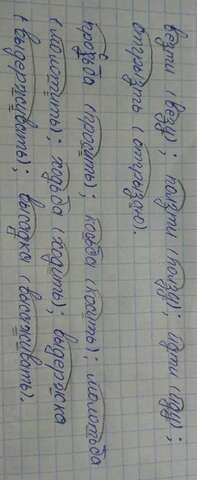 везти (везу); ползти (ползу); идти (иду);
отгрызть (отгрызу).
просьба (просить); косьба (косить); молотьба
(молотить); ходьба (ходить); выдержка
(выдерживать); высадка (высаживать).